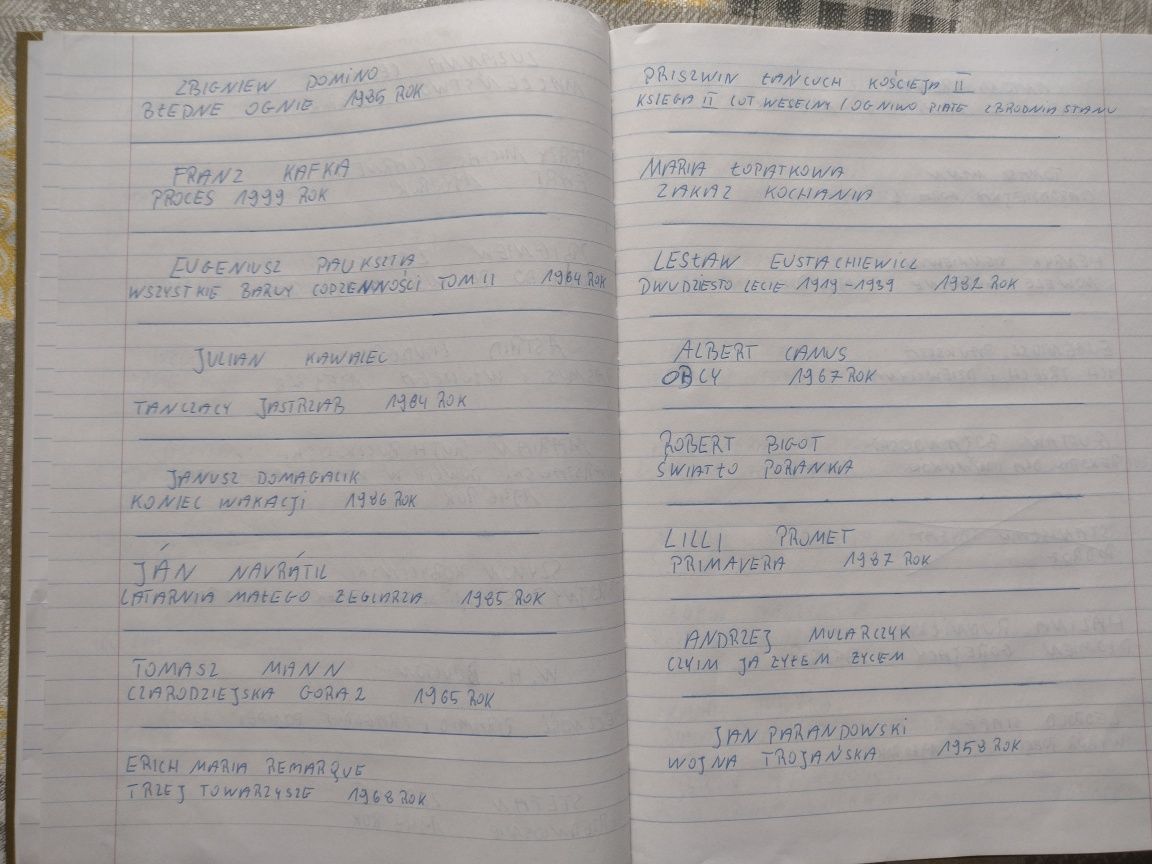 ZBIGNIEW DOMINO
BŁEDNE OGNIE 1985 ROK
FRANZ KAFKA
PROCES 1999 ROK
EUGENIUSZ PAUKSZTA
WSZYSTKIE BARWY CODZENNOŚCI TOM II 1964 ROK
JULIAN KAWALEC
TANCZACY JASTRZAB 1984 ROK
JANUSZ DOMAGALIK
KONIEC WAKACJI 1986 ROK
JÁN NAVRÁTIL
LATARNIA MAŁEGO ZEGLARZA 1985 ROK
TOMASZ MANN
CZARODZIEJSKA GORA 2 1965 ROK
ERICH MARIA REMARQUE
TRZEJ TOWARZYSZE 1968 ROK
PRISZWIN ŁAŃCUCH KOŚCIEJA II
KSIEGA II LOT WESELNY / OGNIWO PIATE ZBRODNIA STANU
MARIA ŁOPATKOWA
ZAKAZ KOCHANIA
LESŁAW EUSTACHIEWICZ
DWUDZIESTO LECIE 1919-1939 1982 ROK
ALBERT CAMUS
OBCY 1967 ROK
ROBERT BIGOT
ŚWIATŁO PORANKA
LILLI PROMET
PRIMAVERA 1987 ROK
ANDRZEJ MULARCZYK
CZYIM JA ZYŁEM ZYCIEM
JAN PARANDOWSKI
WOJNA TROJAŃSKA 1958 ROK